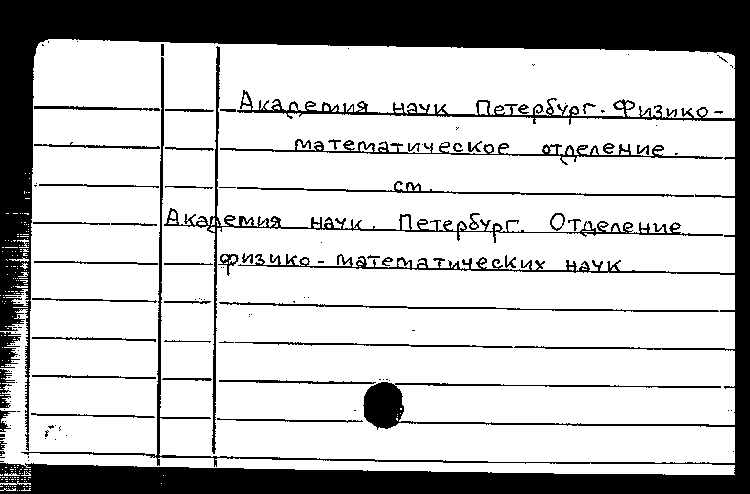 Академия наук Петербург. Физико-
математическое отделение.
ст.
Академия наук. Петербург. Отделение
физико-математических наук.